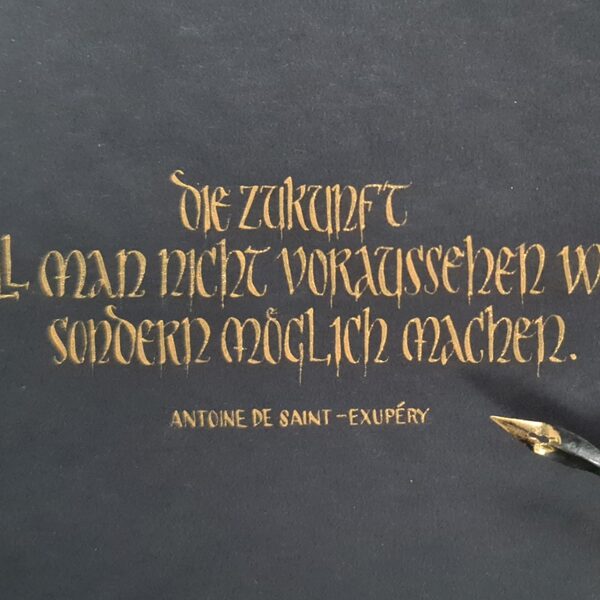 DIE ZUKUNFT
LL MAN NICHT VORAUSSEHEN W
SONDERN MÖGLICH MACHEN.
ANTOINE DE SAINT-EXUPÉRY